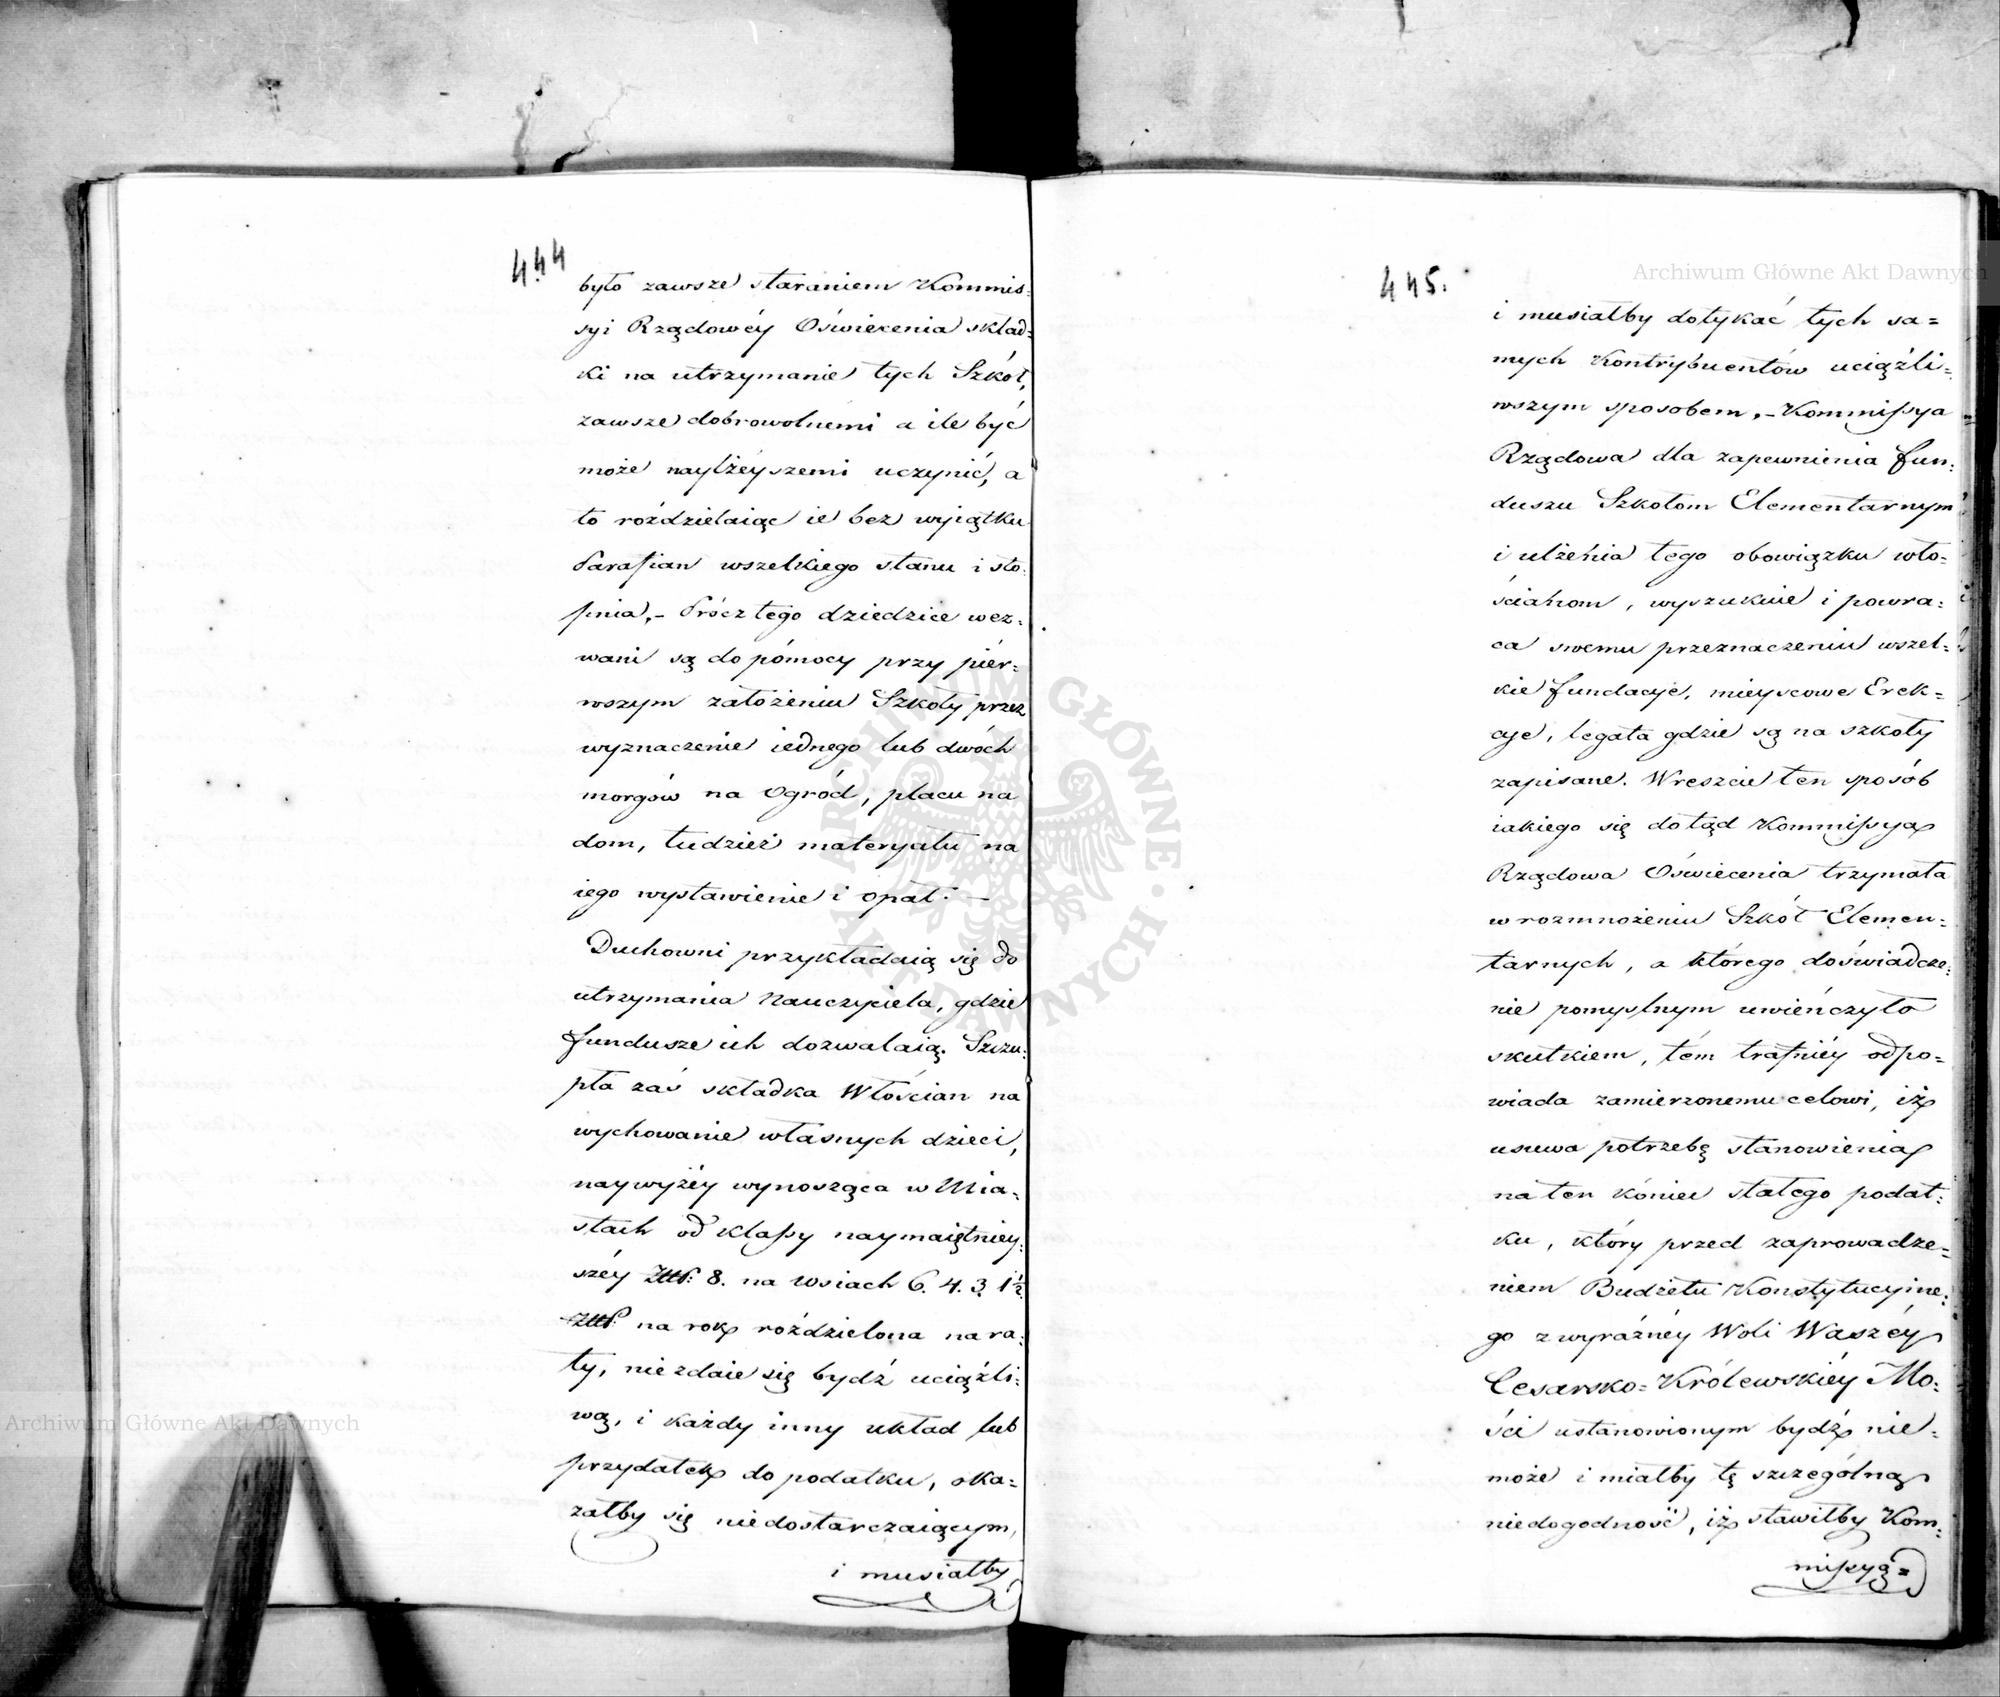 444
było zawsze staraniem Kommis=
syi Rządowéy Oświecenia skład=
ki na utrzymanie tych Szkół,
zawsze dobrowolnemi a ile być
może naylżéyszemi uczynić, a
to rozdzielaiąc ie bez wyiątku
Parafian wszelkiego stanu i sto=
pnia,- Prócz tego dziedzice wez=
wani są do pómocy przy piér=
wszym założeniu Szkoły przez
wyznaczenie iednego lub dwóch
morgów na Ogród, placu na
dom, tudzież materyału na
iego wystawienie i opał. —
Duchowni przykładaią się do
utrzymania Nauczyciela, gdzie
fundusze ich dozwalaią. Szczu=
pła zaś składka Włościan na
wychowanie własnych dzieci,
naywyżéy wynosząca w Mia=
stach od klassy naymaiętniey=
széy Złłp: 8. na Wsiach 6. 4. 3. 1½
Złłp na rok rozdzielona na ra=
ty, nie zdaie się bydź uciążli=
wą, i każdy inny układ lub
przydatek do podatku, oka=
załby się niedostarczaiącym,
i musiałby
445.
i musiałby dotykać tych sa=
mych Kontrybuentów uciążli=
wszym sposobem,- Kommissya
Rządowa dla zapewnienia fun=
duszu Szkołom Elementarnym
i ulżenia tego obowiązku wło=
ścianom, wyszukuie i powra=
ca swemu przeznaczeniu wszel=
kie fundacye, mieyscowe Erek=
cye, legata gdzie są na szkoły
zapisane. Wreszcie ten sposób
iakiego się dotąd Kommissya
Rządowa Oświecenia trzymała
w rozmnożeniu Szkół Elemen=
tarnych, a którego doświadcze=
nie pomyslnym uwieńczyło
skutkiem, tém trafniéy odpo=
wiada zamierzonemu celowi, iż
usuwa potrzebę stanowienia
na ten koniec stałego podat=
ku, który przed zaprowadze=
niem Budżetu Konstytucyjne=
go z wyraźnéy Woli Waszéy
Cesarsko=Królewskiéy Mo=
ści ustanowionym bydź nie=
może i miałby tę szczególną
niedogodność, iż stawiłby Kom=
missyą=
Archiwum Główne Akt Dawnych
Archiwum Główne Akt Dawnych
ARCHIWUM GŁÓWNE AKT DAWNYCH